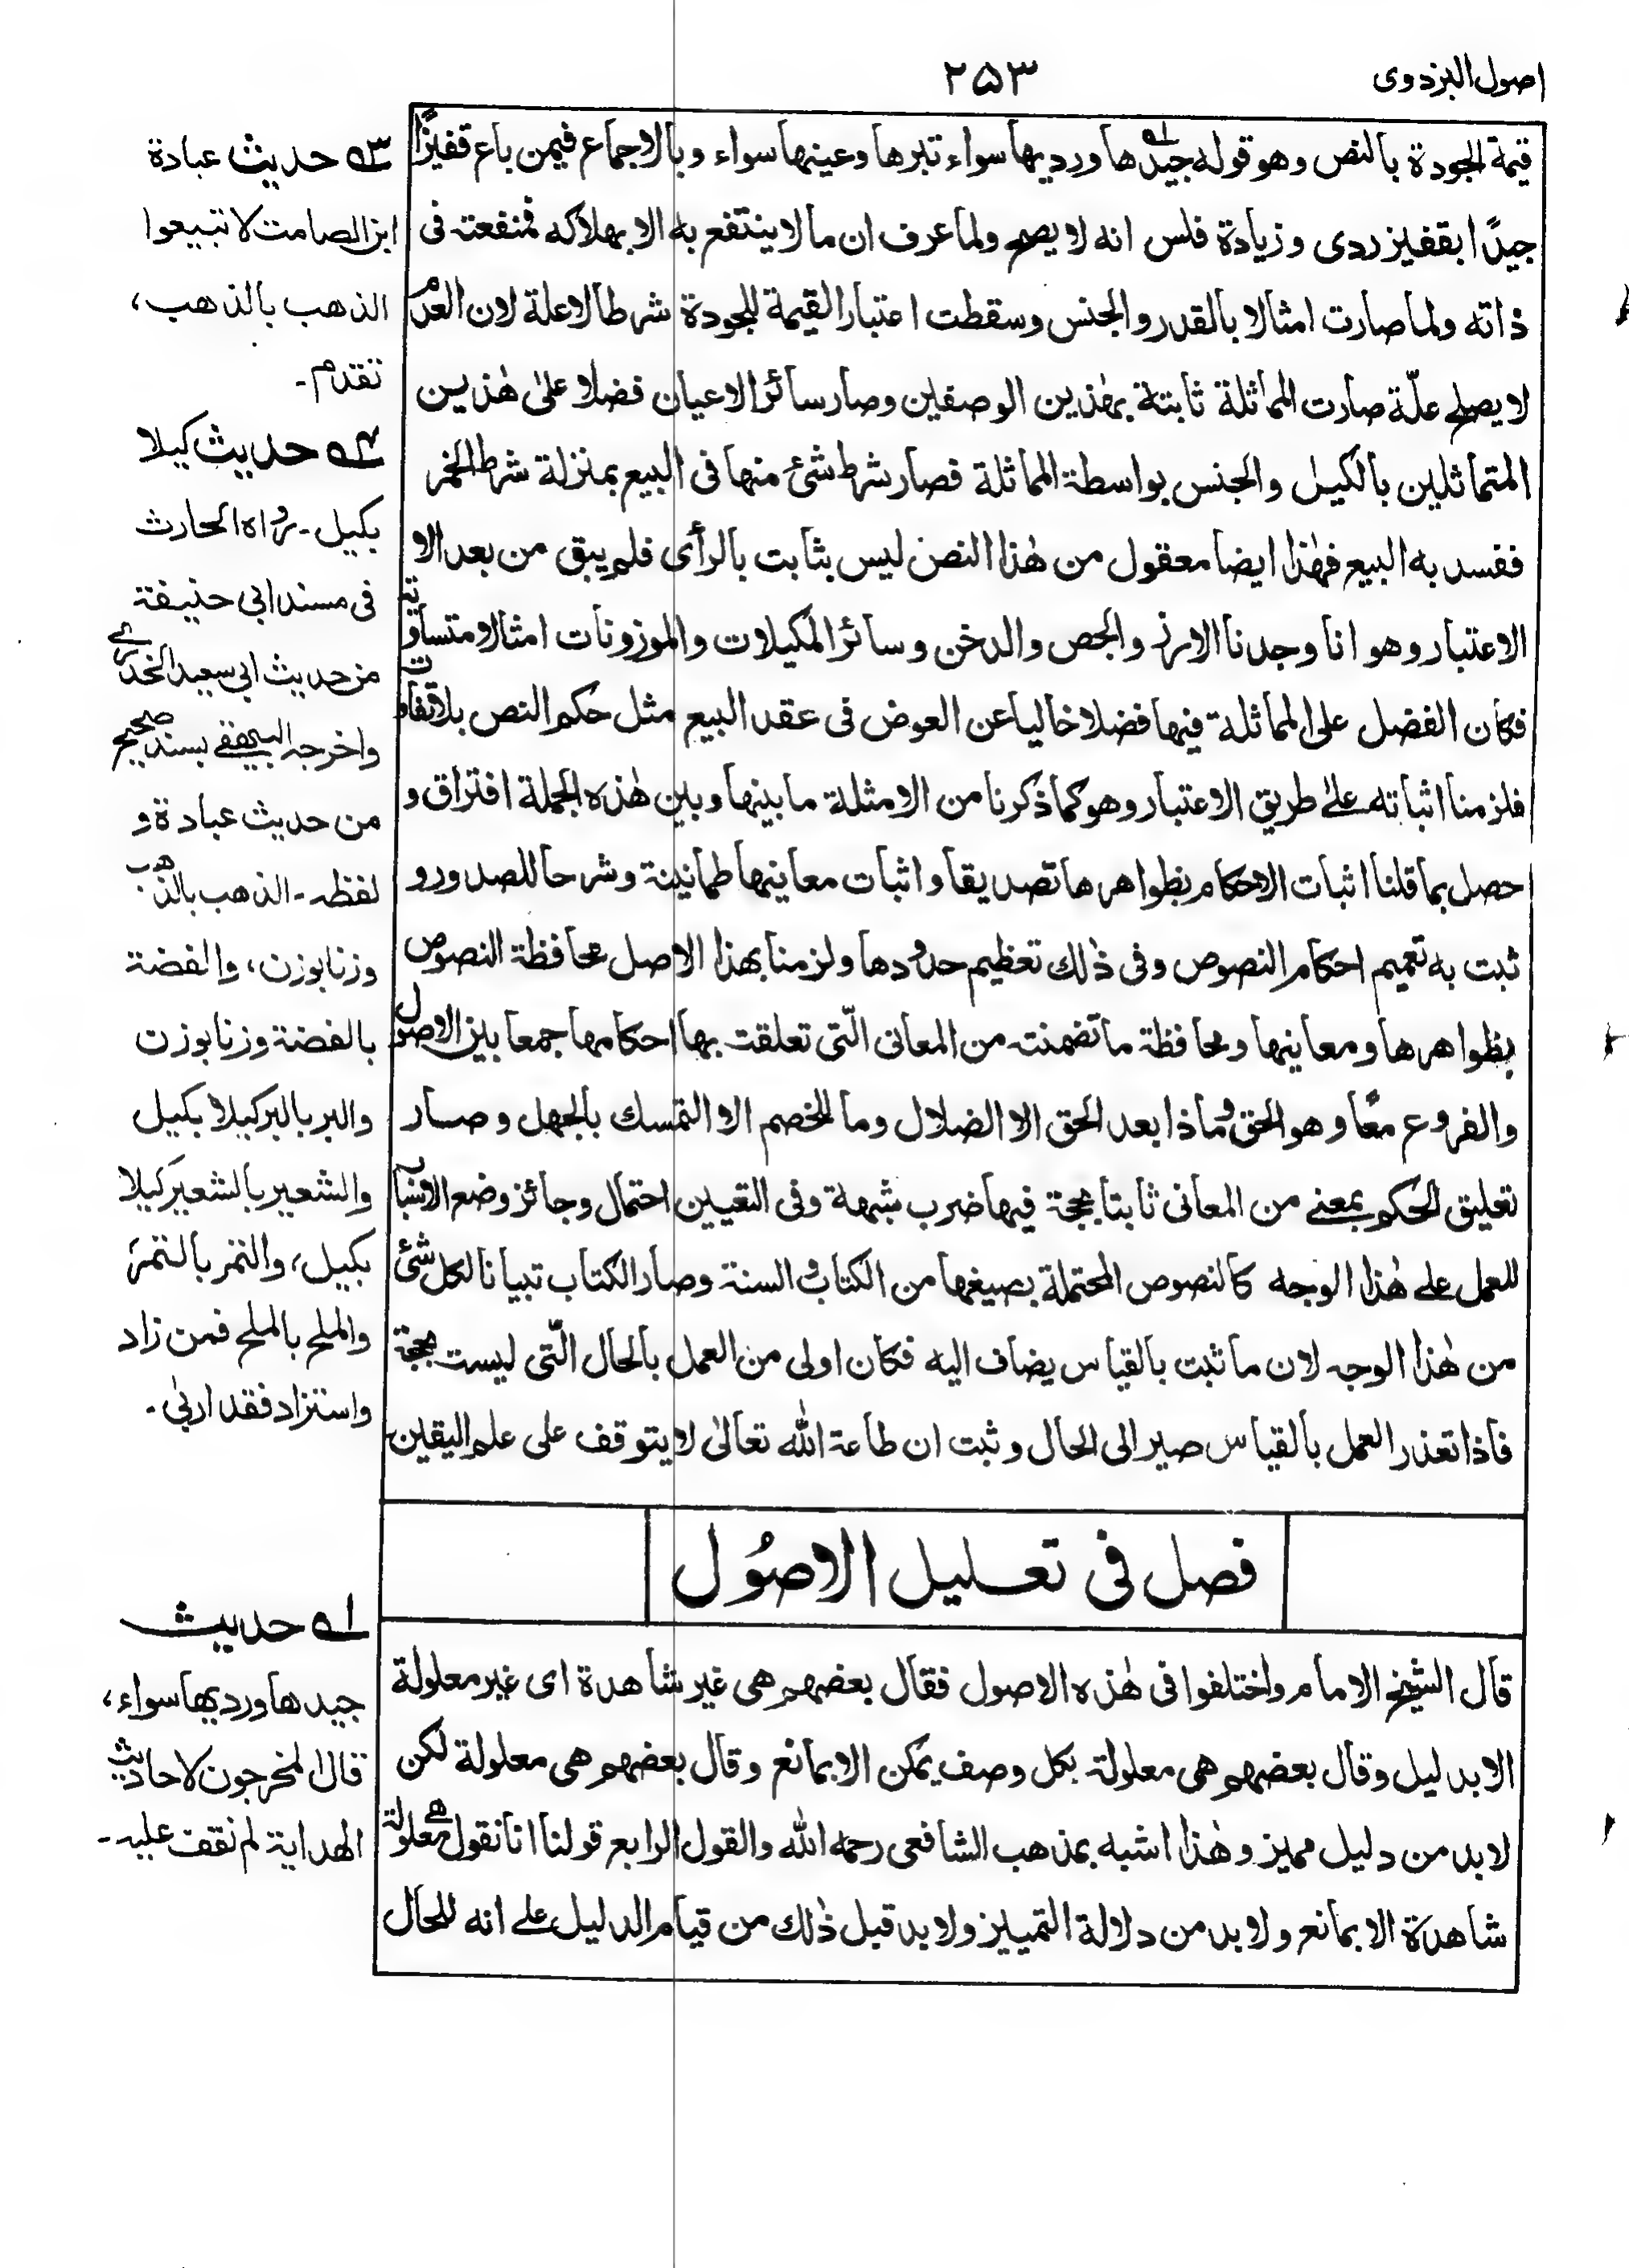 اصول البزدوى
٢٥٣
قيمة الجودة بالنص وهو قوله جيدها ورديها سواء تبرها وعينها سواء وبالاجماع فيمن باع قفيزًا
جيدًا بقفيز ردى وزيادة فلس انه لا يصح ولما عرف ان ما لا ينتفع به الا بهلاكه فمنفعته فى
ذاته ولما صارت امثالا بالقدر والجنس وسقطت اعتبار القيمة للجودة شرطا لا علة لان العدم
لا يصلح علّة صارت المماثلة ثابتة بهٰذين الوصفين وصار سائر الاعيان فضلا علىٰ هٰذين
المتماثلين بالكيل والجنس بواسطة المماثلة فصار شرط شئ منها فى البيع بمنزلة شرط الخمر
ففسد به البيع فهٰذا ايضا معقول من هٰذا النص ليس بثابت بالرأى فلم يبق من بعد الا
الاعتبار وهو انا وجدنا الارز والجص والدخن وسائر المكيلات والموزونات امثالا متساوية
فكان الفضل على المماثلة فيها فضلا خاليا عن العوض فى عقد البيع مثل حكم النص بلا تفاوت
فلزمنا اثباته علىٰ طريق الاعتبار وهو كما ذكرنا من الامثلة ما بينها وبين هٰذه الجملة افتراق و
حصل بما قلنا اثبات الاحكام بظواهرها تصديقا واثبات معانيها طمانينة وشرحا للصدور و
ثبت به تعميم احكام النصوص وفى ذٰلك تعظيم حدودها ولزمنا بهذا الاصل محافظة النصوص
بظواهرها ومعانيها ومحافظة ما تضمنته من المعانى الّتى تعلقت بها احكامها جمعا بين الاصول
والفروع معًا وهو الحق وماذا بعد الحق الا الضلال وما للخصم الا التمسك بالجهل وصار
تعليق الحكم بمعنے من المعانى ثابتا بحجة فيها ضرب شبهة وفى التعيين احتمال وجائز وضع الاسباب
للعمل علے هٰذا الوجه كالنصوص المحتملة بصيغها من الكتاب والسنة وصار الكتاب تبيانا لكل شئ
من هٰذا الوجه لان ما ثبت بالقياس يضاف اليه فكان اولى من العمل بالحال الّتى ليست بحجة
فاذا تعذر العمل بالقياس صير الى الحال وثبت ان طاعة اللّٰه تعالىٰ لا يتوقف على علم اليقين
فصل فى تعليل الاصُول
قال الشيخ الامام واختلفوا فى هٰذه الاصول فقال بعضهم هى غير شاهدة اى غير معلولة
الا بدليل وقال بعضهم هى معلولة بكل وصف يمكن الا بمانع وقال بعضهم هى معلولة لكن
لا بد من دليل مميز وهٰذا اشبه بمذهب الشافعى رحمه اللّٰه والقول الرابع قولنا انا نقول هے معلولة
شاهدة الا بمانع ولا بد من دلالة التمييز ولا بد قبل ذٰلك من قيام الدليل علے انه للحال
٣ ه حديث عبادة
ابن الصامت لا تبيعوا
الذهب بالذهب،
تقدم ـ
٤ ه حديث كيلا
بكيل ـ رواه الحارث
فى مسند ابى حنيفة
من حديث ابى سعيد الخدرے
واخرجه البيهقے بسند صحيح
من حديث عبادة و
لفظه ـ الذهب بالذهب
وزنا بوزن، والفضة
بالفضة وزنا بوزن
والبر بالبر كيلا بكيل
والشعير بالشعير كيلا
بكيل، والتمر بالتمر
والملح بالملح فمن زاد
واستزاد فقد اربىٰ ـ
١ ه حديث
جيدها ورديها سواء،
قال المخرجون لاحاديث
الهداية لم نقف عليه ـ